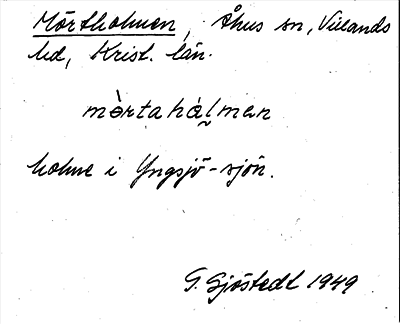 Mörtholmen, Åhus sn, Villands
hd, Krist. län.
mə̀rtahȧl̯mən
holme i Yngsjö-sjön.
G. Sjöstedt 1949